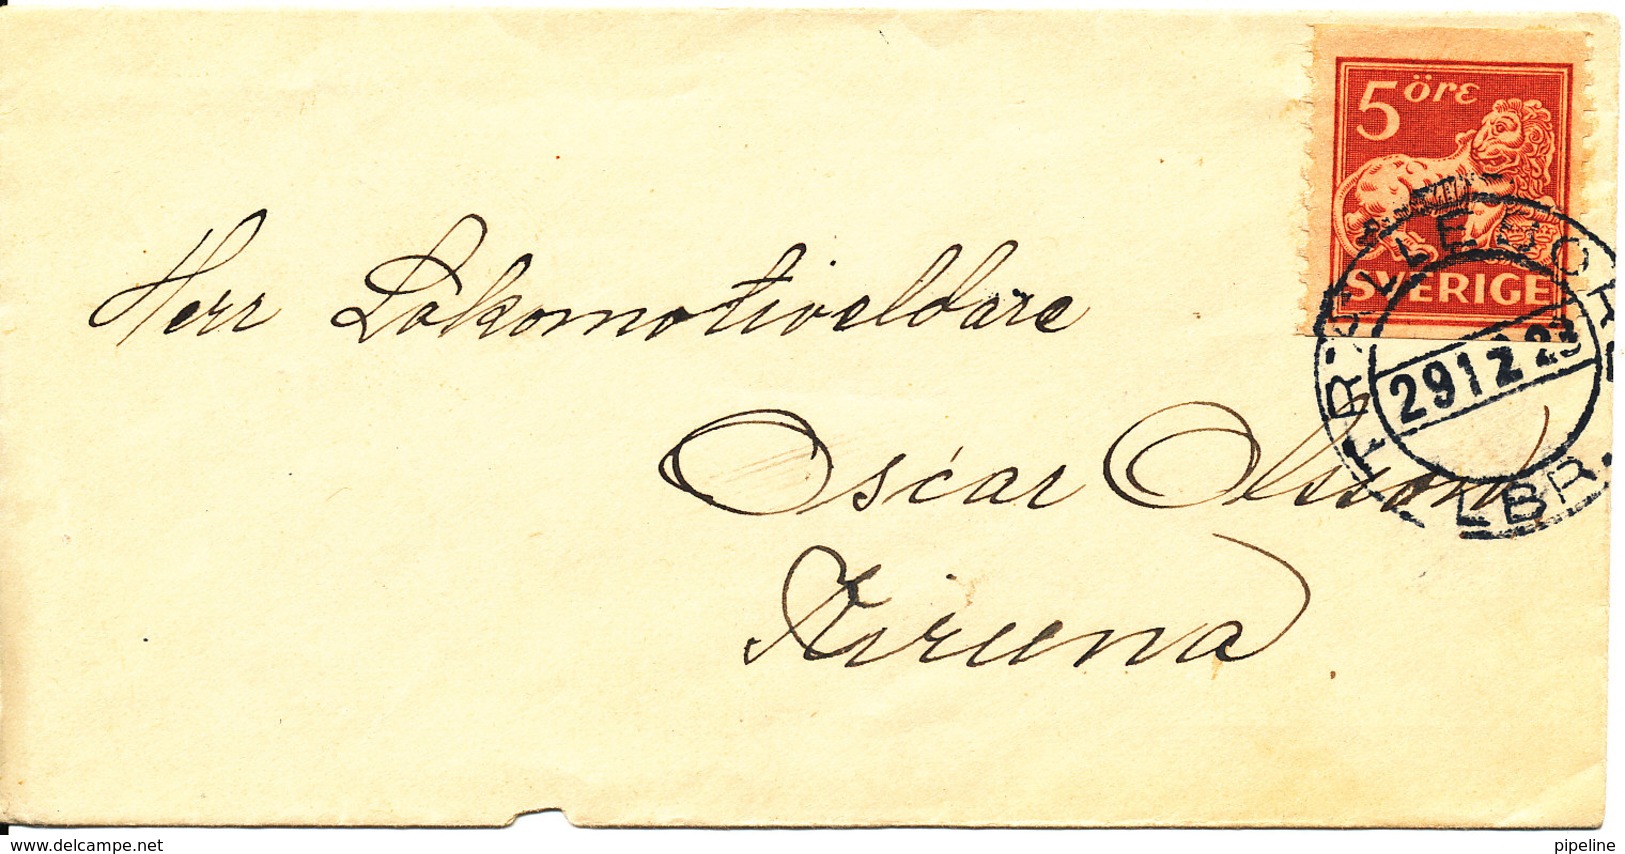 5 öre
SVERIGE
TRÖLLEBOH
29 12 23
LBR.
Herr Lokomotiveldare
Oscar Olsson
Kiruna.
delcampe.net
pipeline